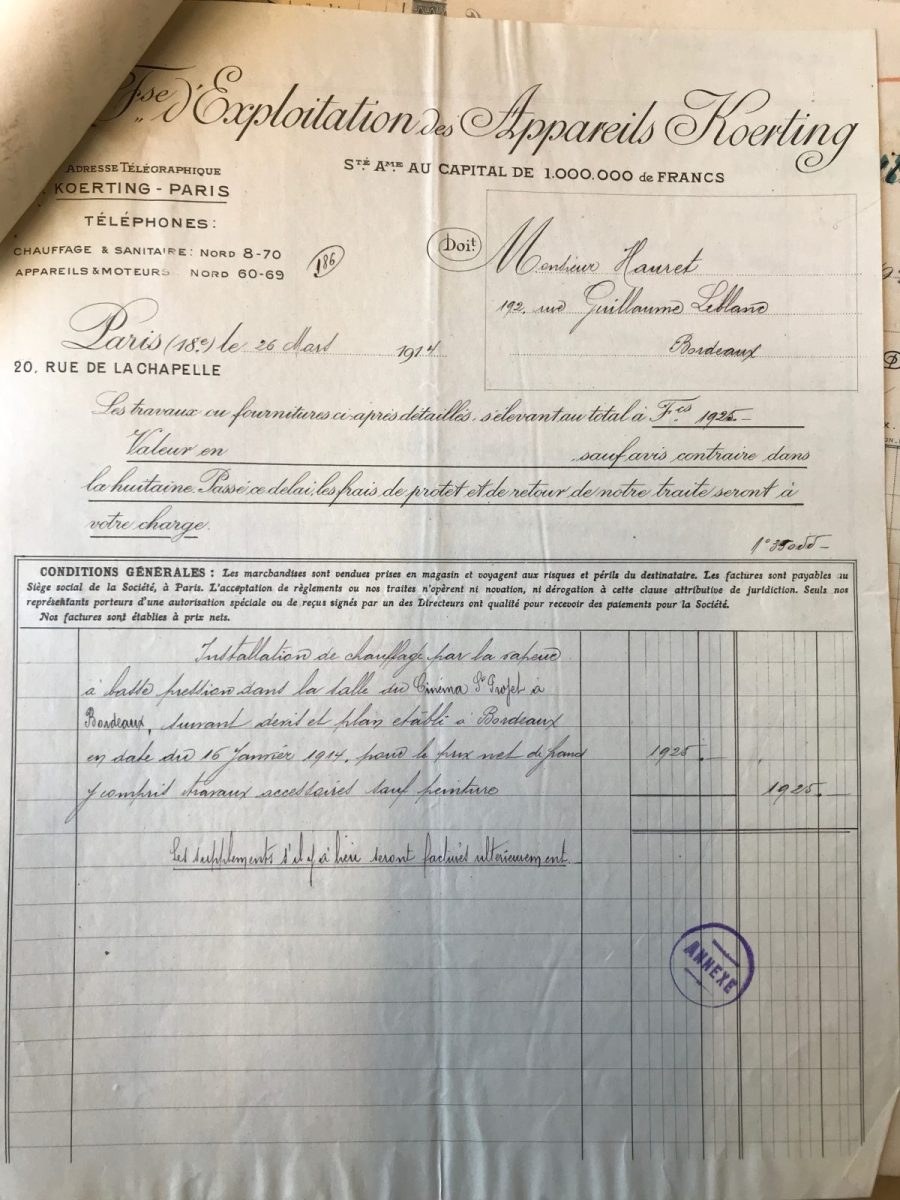 Fse d'Exploitation des Appareils Koerting
Sté Ame AU CAPITAL DE 1.000.000 de FRANCS
ADRESSE TÉLÉGRAPHIQUE
KOERTING - PARIS
TÉLÉPHONES:
CHAUFFAGE & SANITAIRE: NORD 8-70
APPAREILS & MOTEURS NORD 60-69
186
Doit
Monsieur Hauret
192, rue Guillaume Leblanc
Bordeaux
Paris (18e) le 26 Mars 1914
20, RUE DE LA CHAPELLE
Les travaux ou fournitures ci-après détaillés, s'élevant au total à Fcs 1925.-
Valeur en sauf avis contraire dans
la huitaine. Passé ce delai, les frais de protet et de retour de notre traite seront à
votre charge.
CONDITIONS GÉNÉRALES : Les marchandises sont vendues prises en magasin et voyagent aux risques et périls du destinataire. Les factures sont payables au
Siège social de la Société, à Paris. L'acceptation de règlements ou nos traites n'opèrent ni novation, ni dérogation à cette clause attributive de juridiction. Seuls nos
représentants porteurs d'une autorisation spéciale ou de reçus signés par un des Directeurs ont qualité pour recevoir des paiements pour la Société.
Nos factures sont établies à prix nets.
Installation de chauffage par la vapeur
à basse pression dans la salle du Cinéma St Projet à
Bordeaux, suivant devis et plan etabli à Bordeaux
en date du 16 Janvier 1914, pour le prix net de 1925.-
y compris travaux accessoires sauf peinture 1925.-
Les supplements s'il y a lieu seront facturés ulterieurement.
ANNEXE